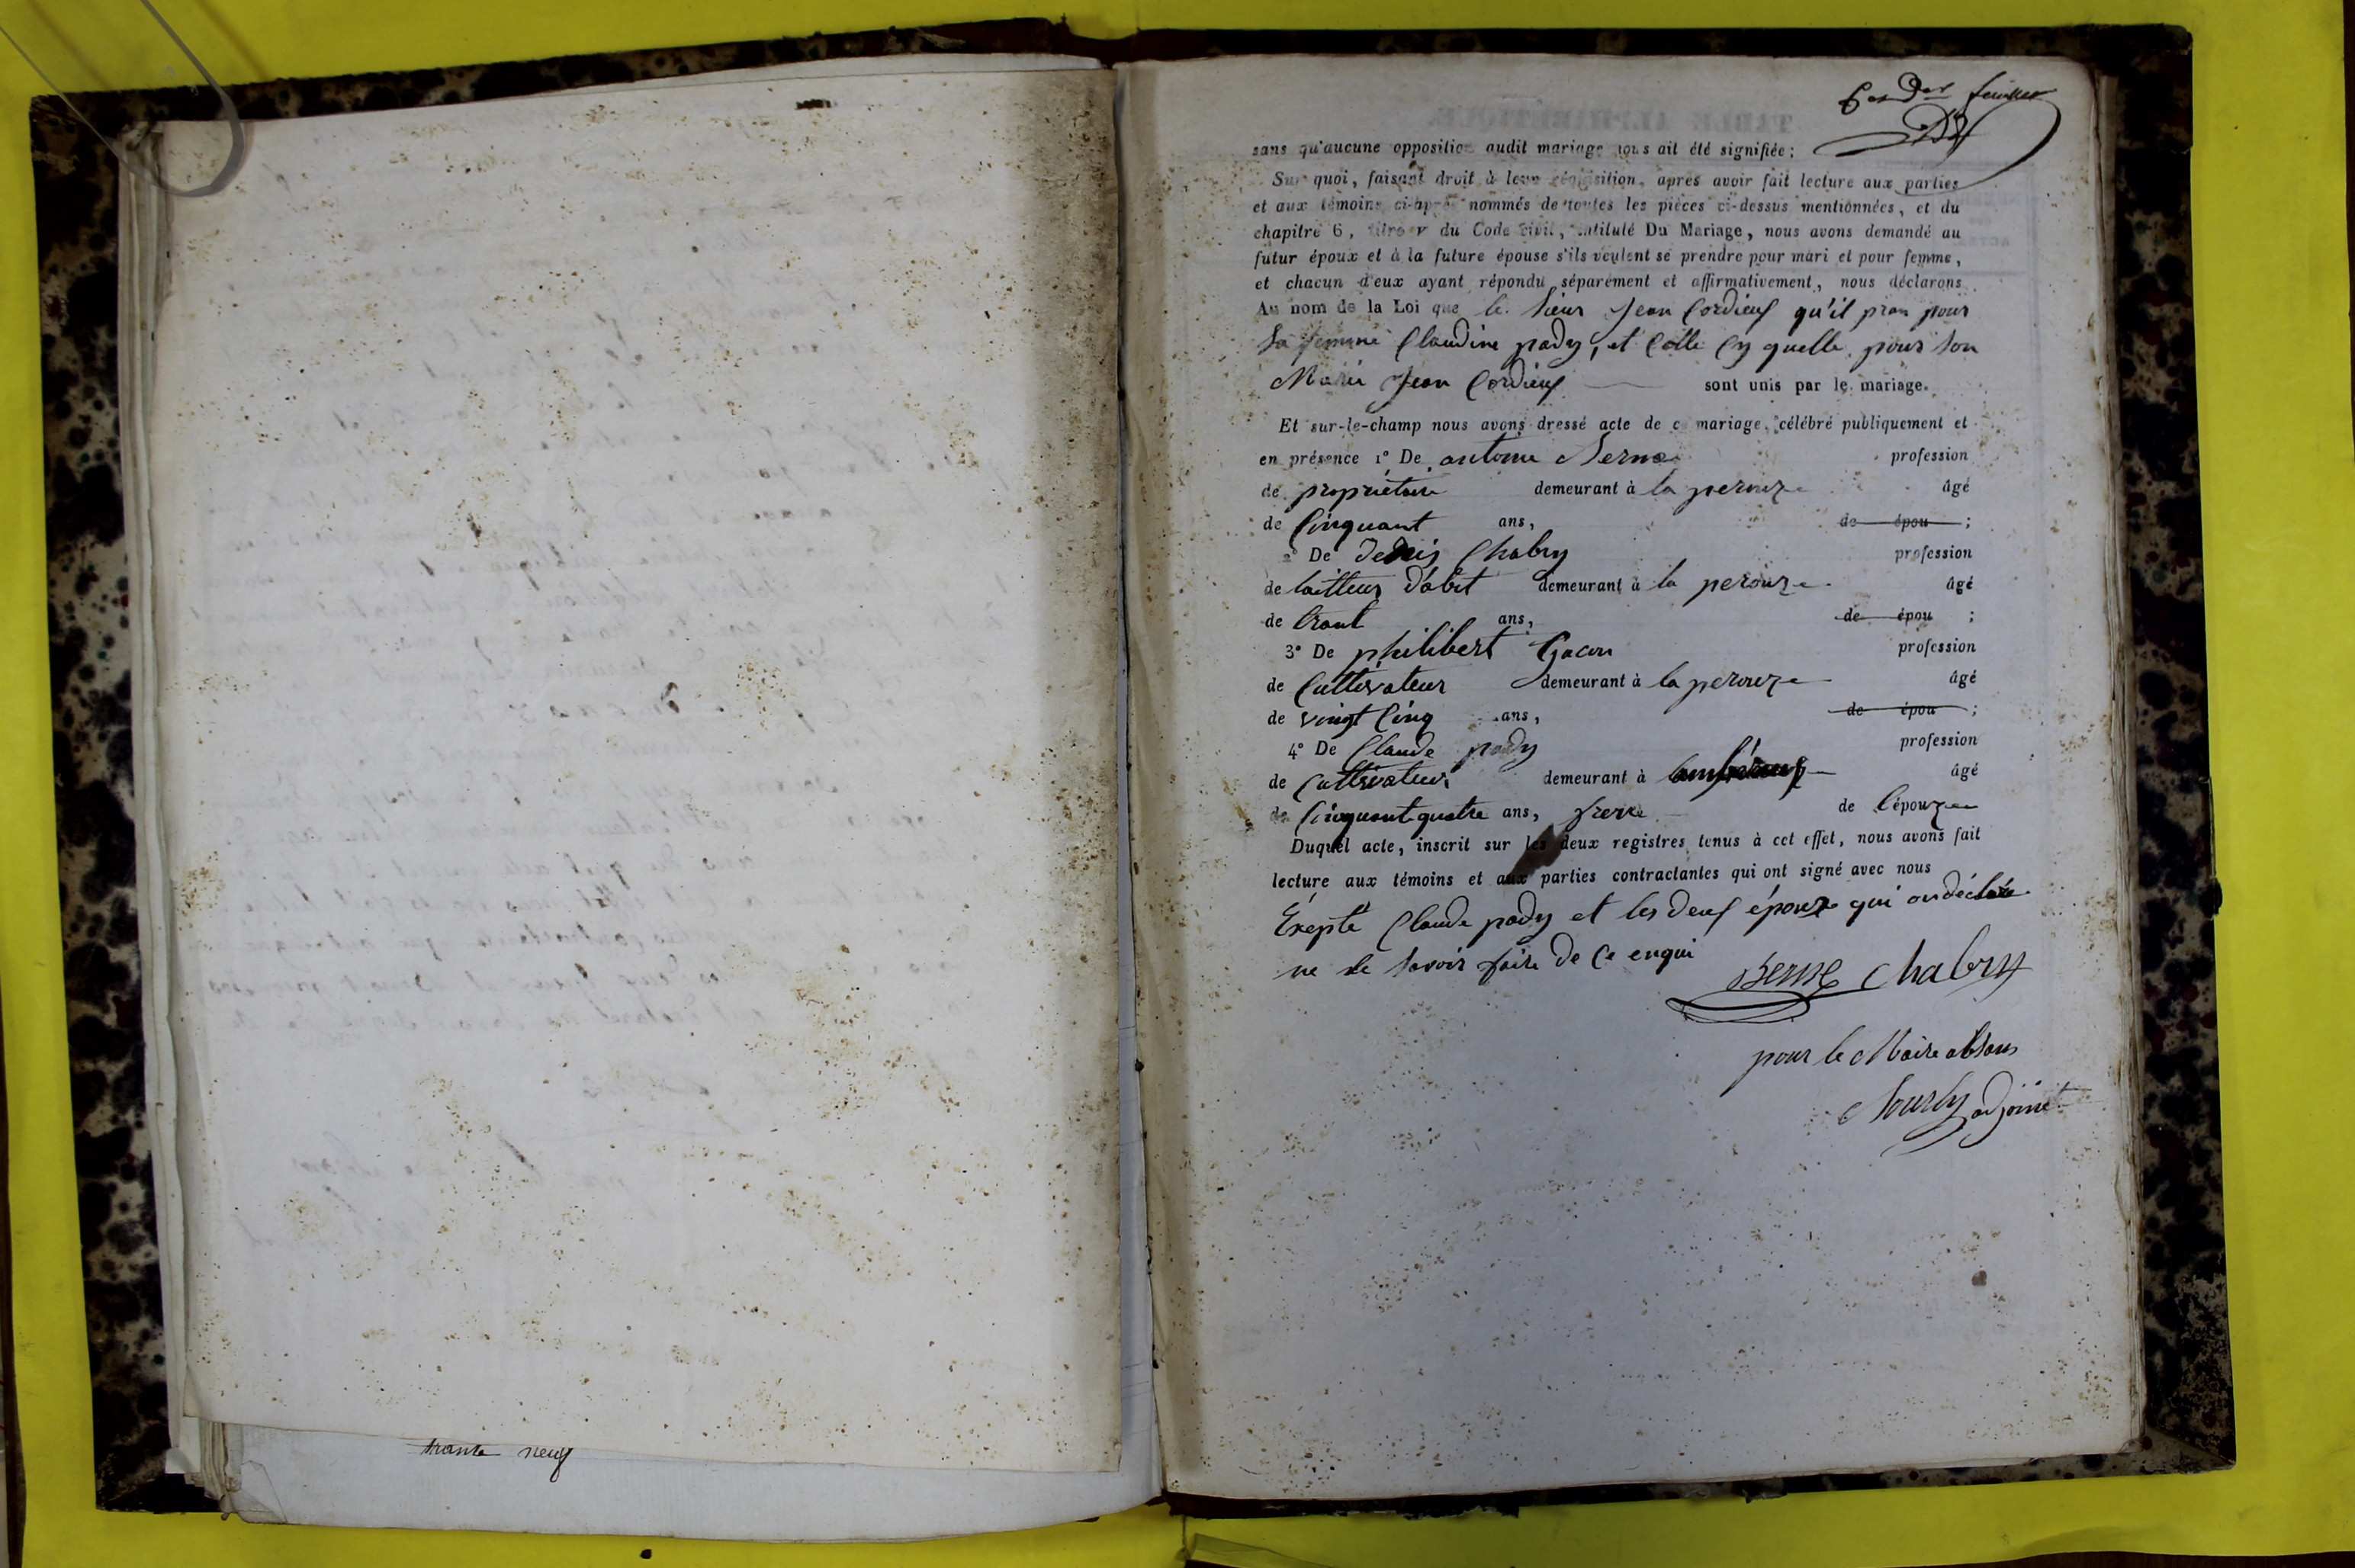 trante neuf
6 et Der feuillet
sans qu'aucune opposition audit mariage nous ait été signifiée;
Sur quoi, faisant droit à leur réquisition, après avoir fait lecture aux parties
et aux témoins ci-après nommés de toutes les pièces ci-dessus mentionnées, et du
chapitre 6, titre v du Code civil, intitulé Du Mariage, nous avons demandé au
futur époux et à la future épouse s'ils veulent se prendre pour mari et pour femme,
et chacun d'eux ayant répondu séparément et affirmativement, nous déclarons
Au nom de la Loi que le sieur Jean Cordieuf qu'il pran pour
sa femme Claudine pady, et Celle Cy quelle pour son
Marie Jean Cordieuf sont unis par le mariage.
Et sur-le-champ nous avons dressé acte de ce mariage, célébré publiquement et
en présence 1° De antoine Berne profession
de propriétaire demeurant à la perouze âgé
de Cinquant ans, de épou ;
2° De denis Chabry profession
de tailleur d'abit demeurant à la perouze âgé
de trant ans, de épou ;
3° De philibert Gacon profession
de Cultivateur demeurant à la perouze âgé
de vingt Cinq ans, de épou ;
4° De Claude pady profession
de Cultivateur demeurant à âgé
de Cinquant quatre ans, frere de l'épouze
Duquel acte, inscrit sur les deux registres tenus à cet effet, nous avons fait
lecture aux témoins et aux parties contractantes qui ont signé avec nous
Exepté Claude pady et les deuf épouze qui on déclaré
ne le savoir faire de Ce enqui
Berne Chabry
pour le Maire absans
Nourly adjoint